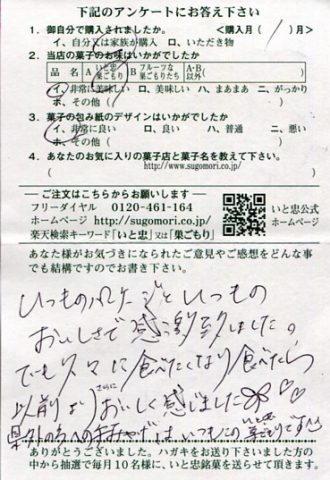 下記のアンケートにお答え下さい
1. 御自分で購入されましたか。 <購入月( 1 )月>
イ、自分又は家族が購入 ロ、いただき物
2. 当店の菓子のお味はいかがでしたか
品名 A いと忠巣ごもり B フルーツな巣ごもりたち A・B以外
イ、非常に美味しい ロ、美味しい ハ、まあまあ ニ、がっかり
ホ、その他( )
3. 菓子の包み紙のデザインはいかがでしたか
イ、非常に良い ロ、良い ハ、普通 ニ、悪い
ホ、その他( )
4. あなたのお気に入りの菓子店と菓子名を教えて下さい。
( http://www.sugomori.co.jp/ )
ご注文はこちらからお願いします
フリーダイヤル 0120-461-164
ホームページ http://sugomori.co.jp/
楽天検索キーワード「いと忠」又は「巣ごもり」
いと忠公式
ホームページ
あなた様がお気づきになられたご意見やご感想をどんな事
でも結構ですのでお書き下さい。
いつもの いつもの
おいしさで感激致しました。
でも久々に食べたくなり食べたら
以前よりさらにおいしく感じました
県外の方へのおみやげはいつもこのいと忠巣ごもりです
ありがとうございました。ハガキをお送り下さいました方の
中から抽選で毎月10名様に、いと忠銘菓を送らせて頂きます。